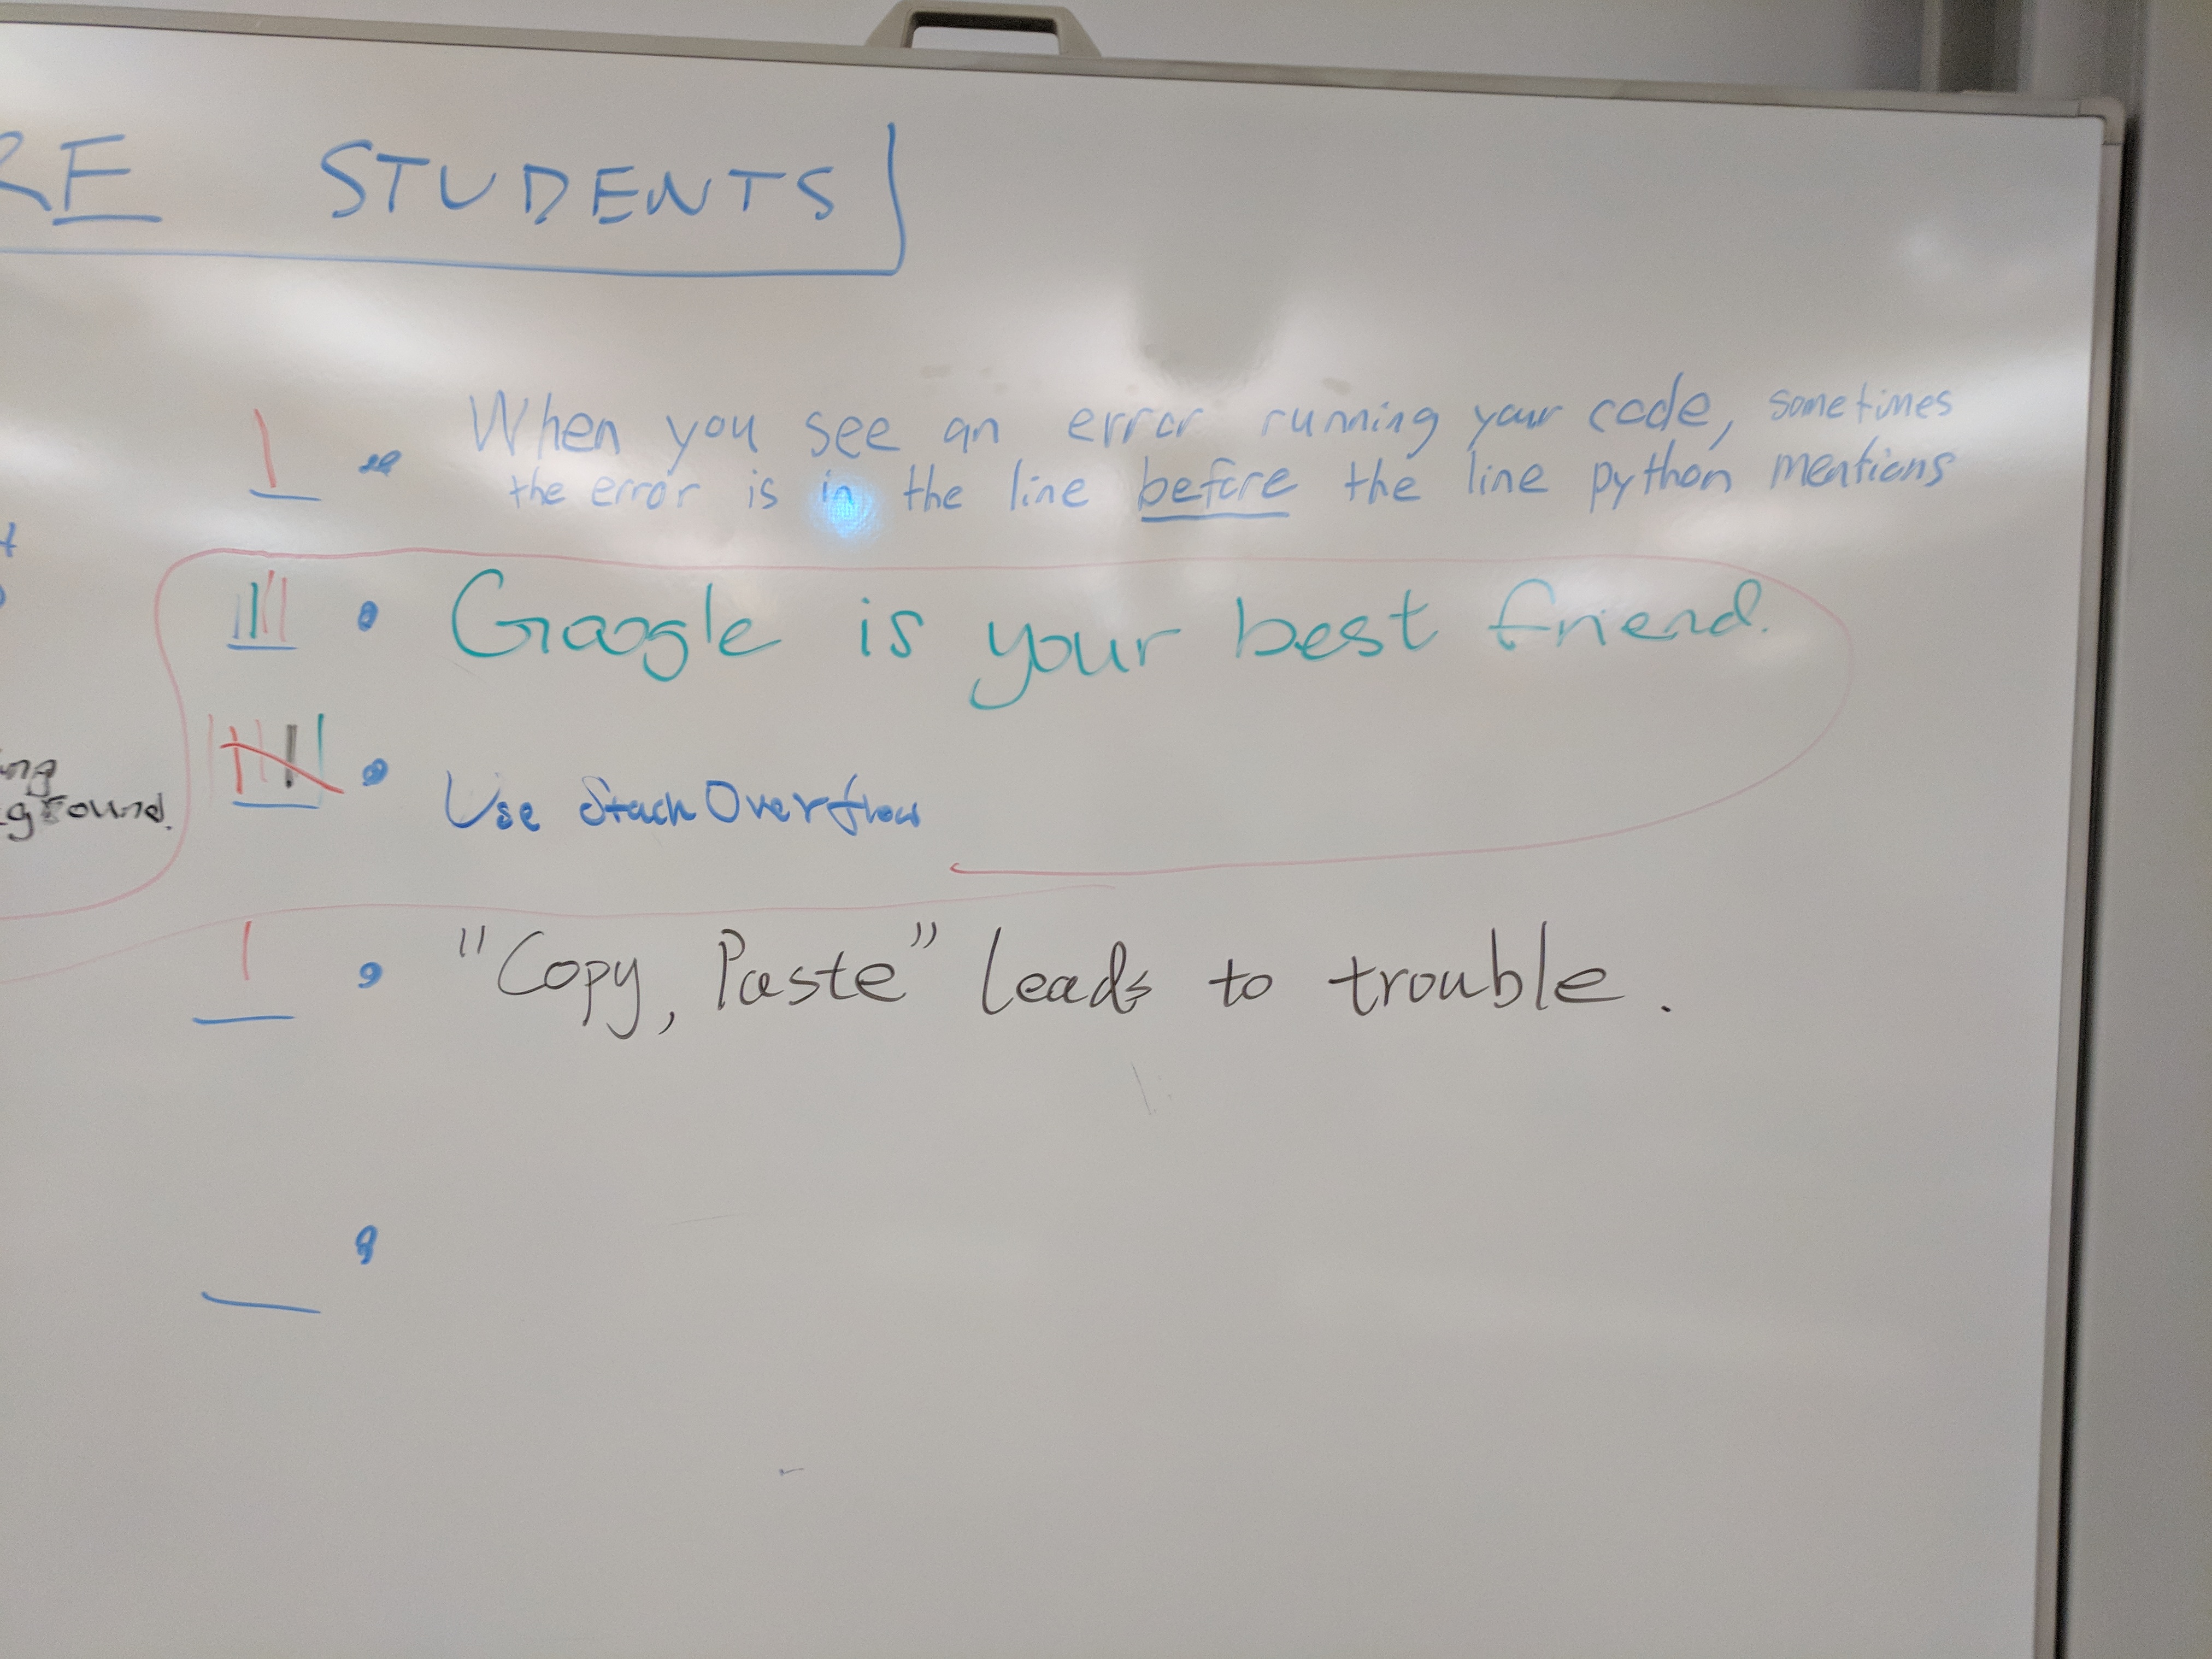 RE STUDENTS
When you see an error running your code, sometimes
the error is in the line before the line python mentions
Google is your best friend.
ng
ground.
Use Stack Overflow
"Copy, Paste" leads to trouble.